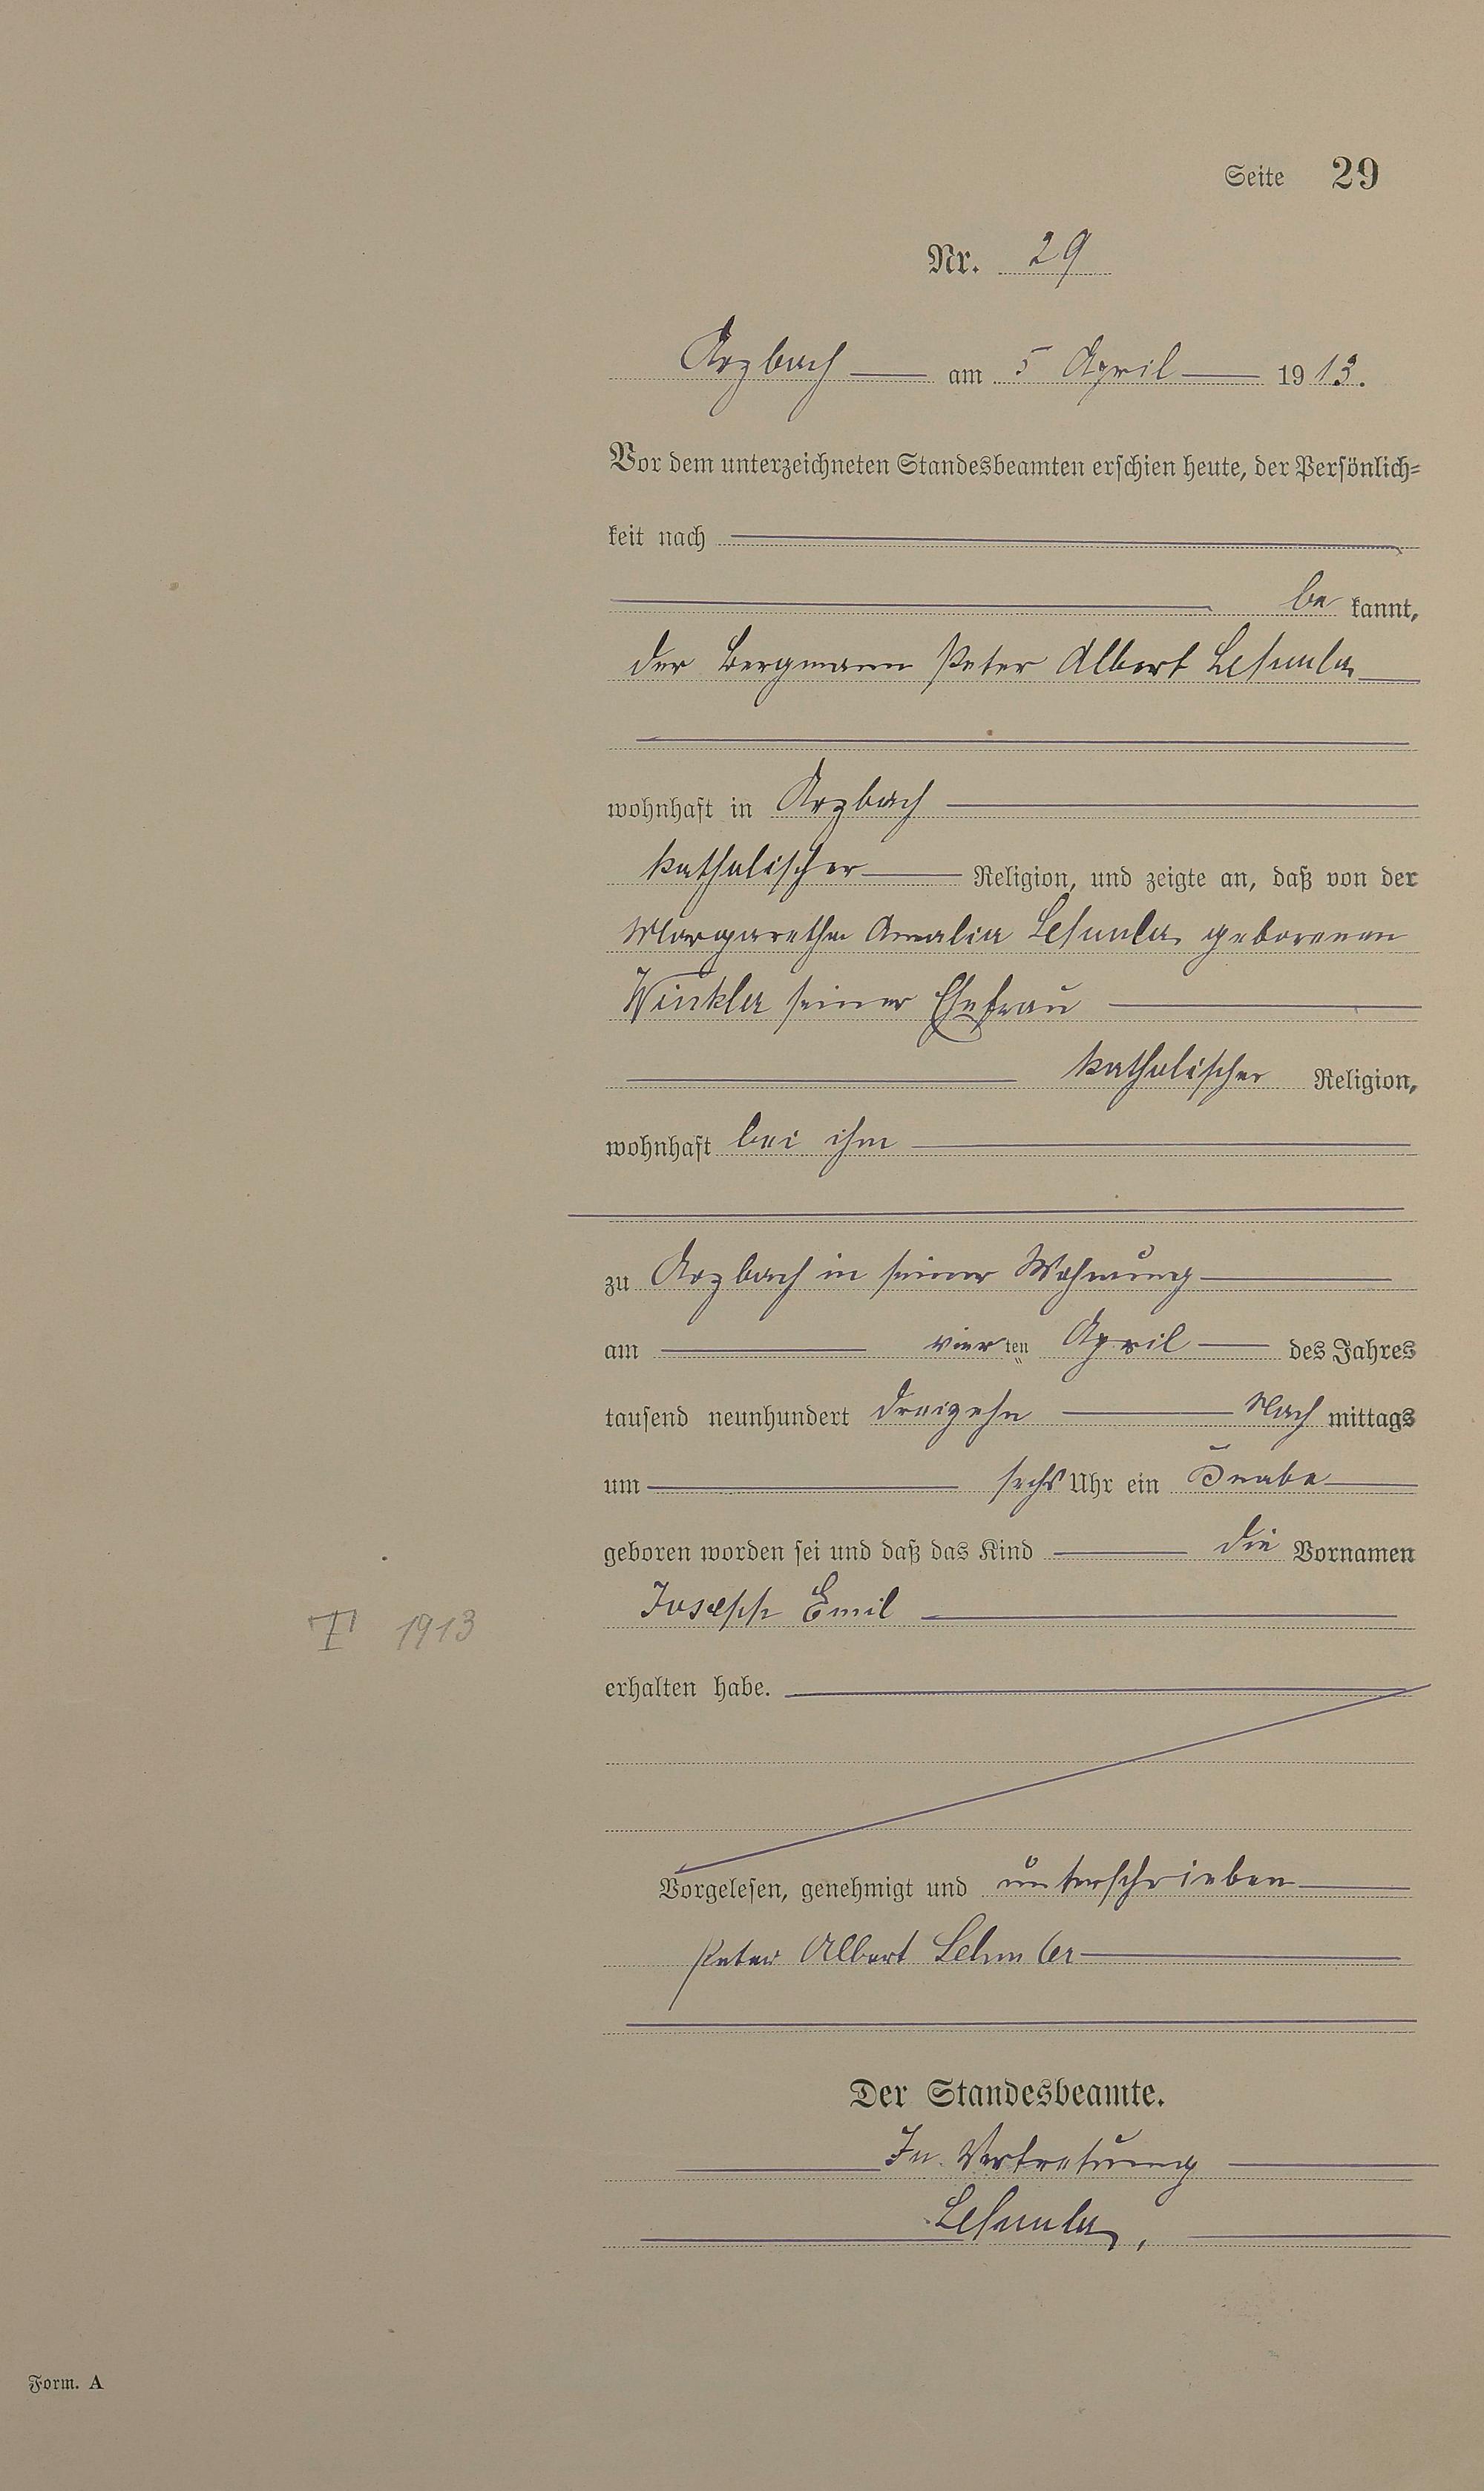 Seite 29
Nr. 29
Arzbach am 5 April 1913.
Vor dem unterzeichneten Standesbeamten erschien heute, der Persönlich-
keit nach
be kannt,
der Bergmann Peter Albert Lehmler
wohnhaft in Arzbach
katholischer Religion, und zeigte an, daß von der
Margaretha Amalia Lehmler geborenen
Winkler seiner Ehefrau
katholischer Religion,
wohnhaft bei ihm
zu Arzbach in seiner Wohnung
am vierten April des Jahres
tausend neunhundert dreizehn Nach mittags
um sechs Uhr ein Knabe
geboren worden sei und daß das Kind die Vornamen
Joseph Emil
† 1913
erhalten habe.
Vorgelesen, genehmigt und unterschrieben
Peter Albert Lehmler
Der Standesbeamte.
In Vertretung
Lehmler
Form. A